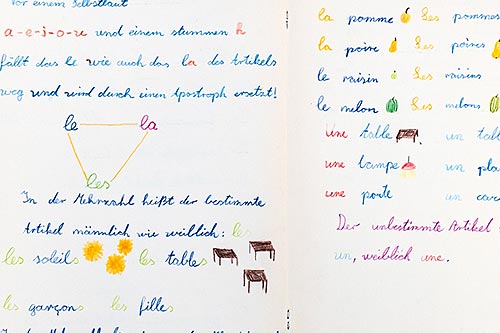 vor einem Selbstlaut
a-e-i-o-u und einem stummen h
fällt das le wie auch das la des Artikels
weg und wird durch einen Apostroph ersetzt!
le la
les
In der Mehrzahl heißt der bestimmte
Artikel männlich wie weiblich: les
les soleils les tables
les garçons les filles
la pomme Les pommes
la poire Les poires
le raisin Les raisins
le melon Les melons
une table un
une lampe un
une porte un
Der unbestimmte Artikel
un, weiblich une.